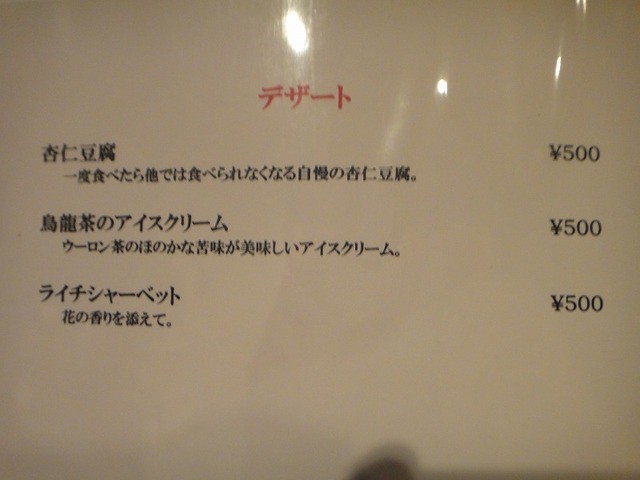 デザート
杏仁豆腐 ¥500
一度食べたら他では食べられなくなる自慢の杏仁豆腐。
烏龍茶のアイスクリーム ¥500
ウーロン茶のほのかな苦味が美味しいアイスクリーム。
ライチシャーベット ¥500
花の香りを添えて。